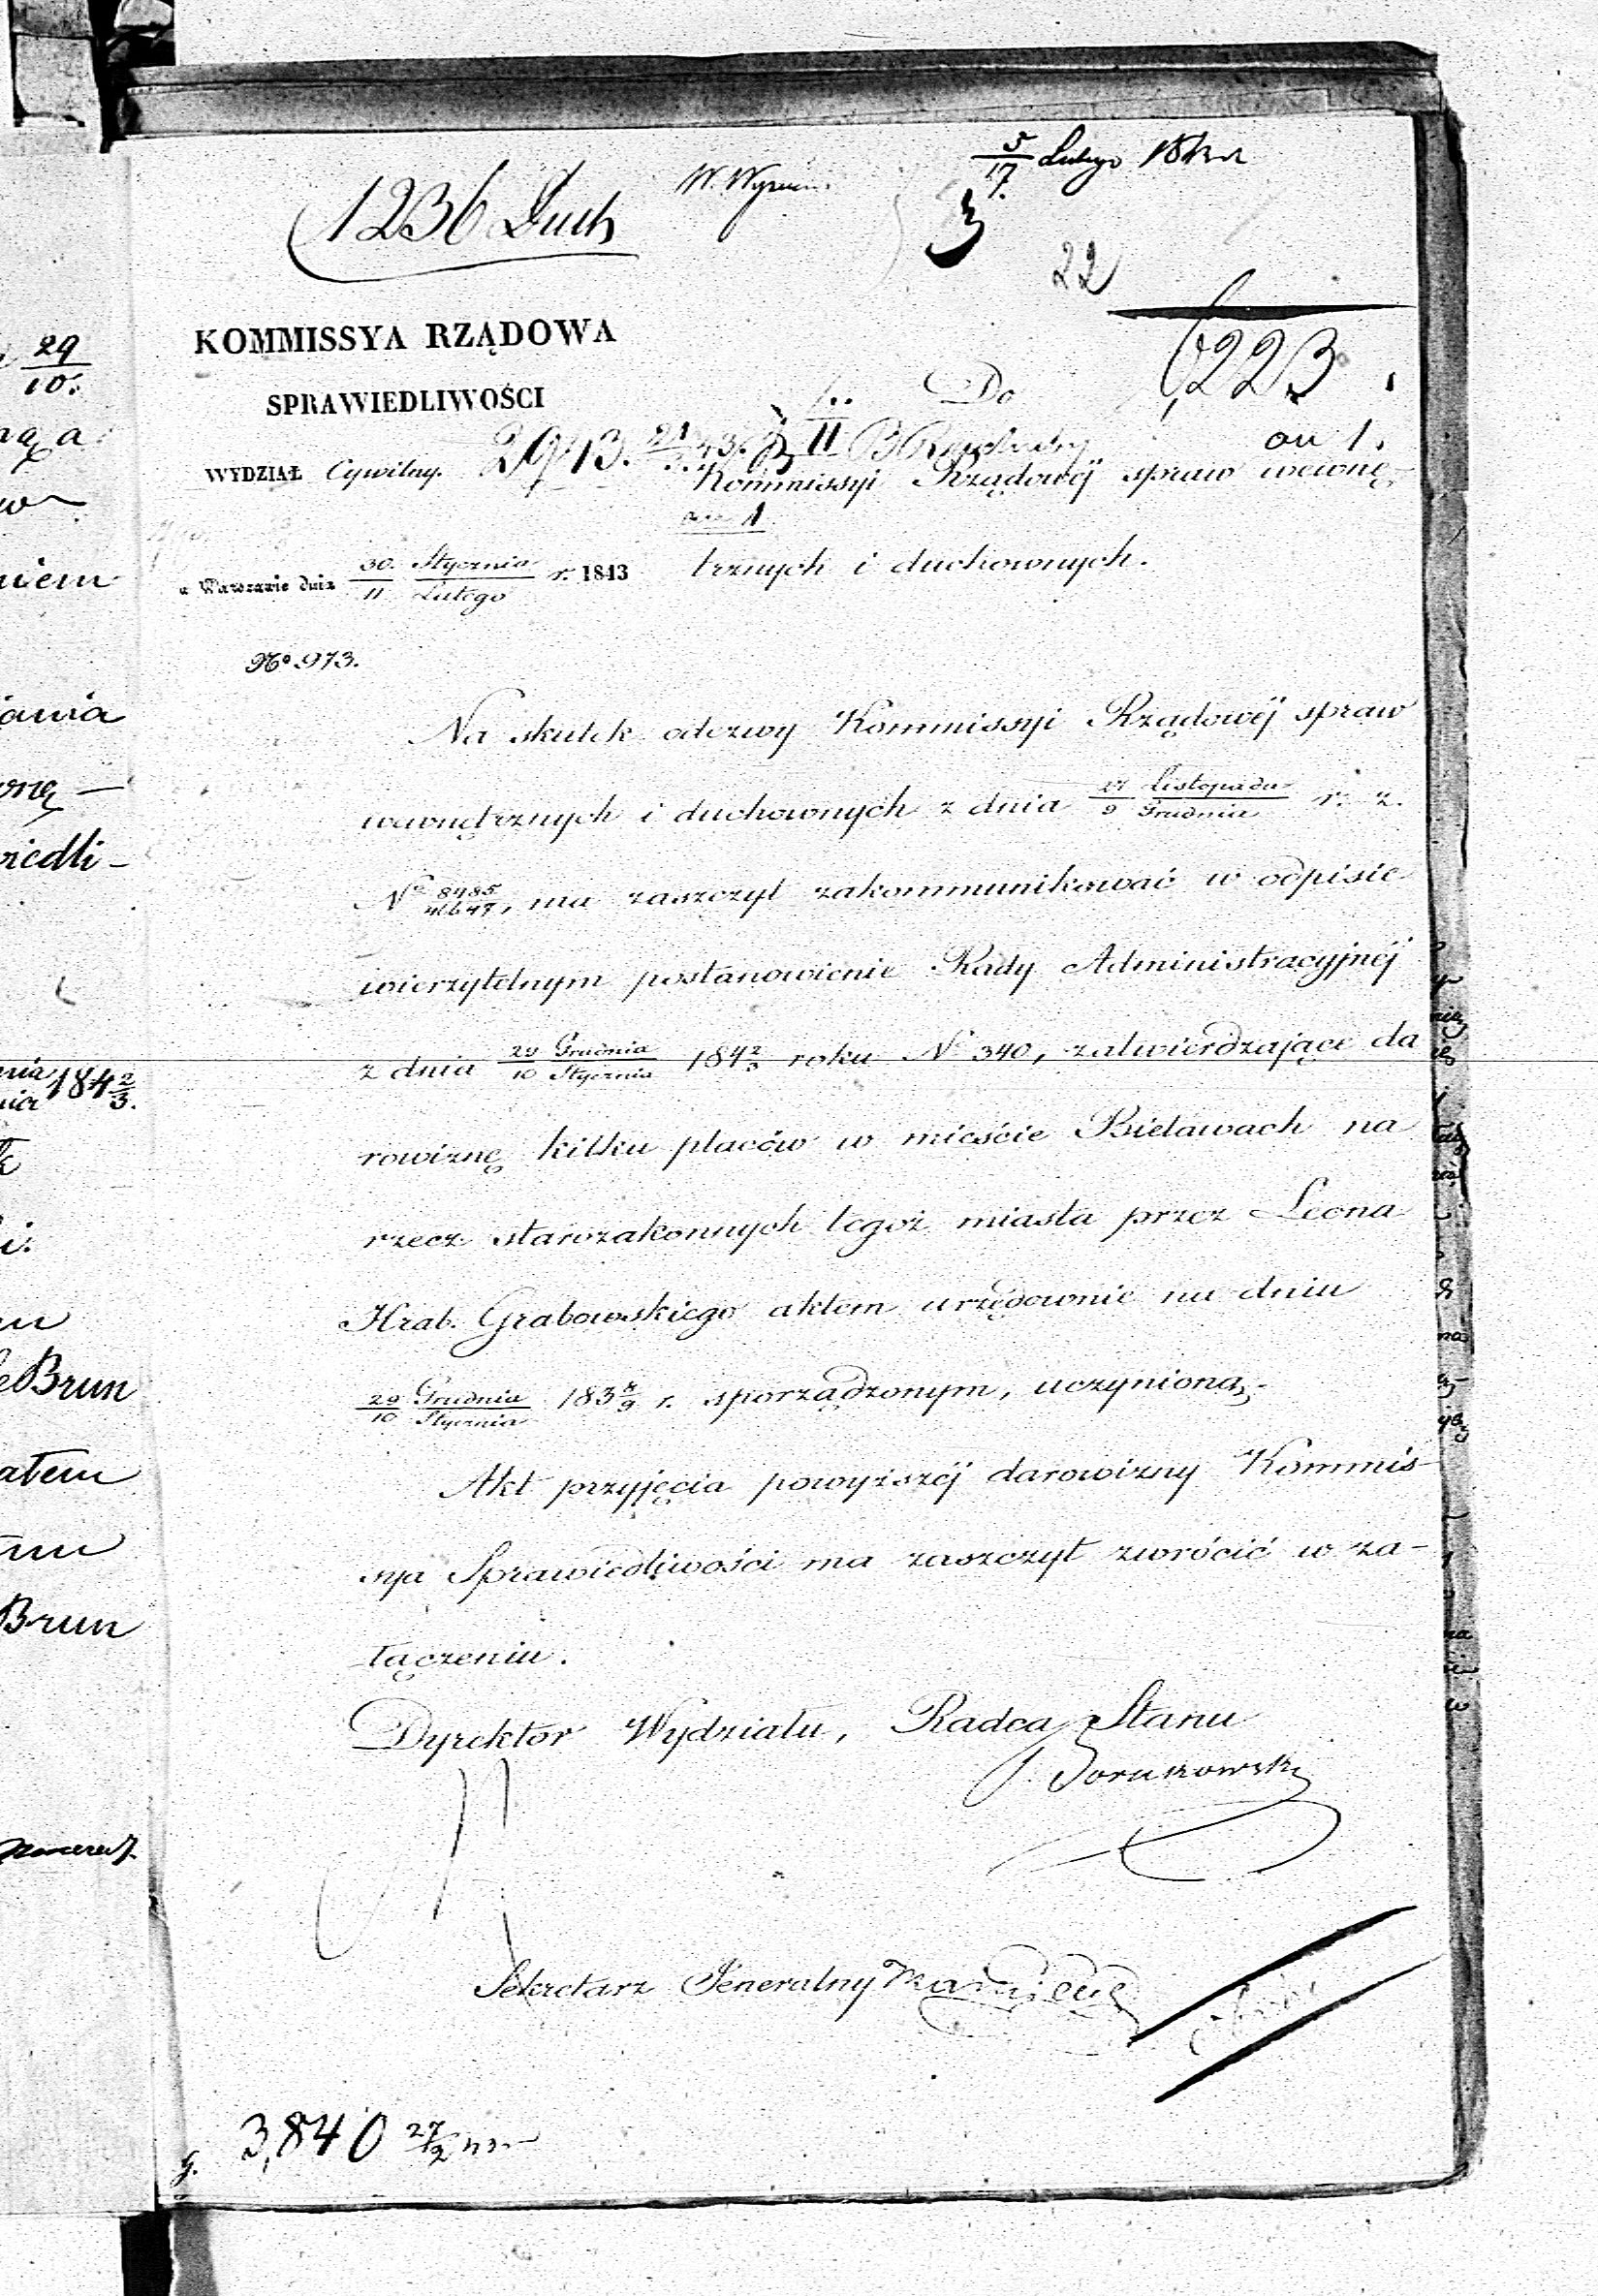 5/17 Lutego 1843 r
1236 Duch
3
22
KOMMISSYA RZĄDOWA
6223
SPRAWIEDLIWOŚCI
Do
an 1.
WYDZIAŁ Cywilny. 2943.
II
Kommissyi Rządowéj spraw wewnę-
an 1
w Warszawie dnia 30. Stycznia / 11 Lutego r. 1843
trznych i duchownych.
No 973.
Na skutek odezwy Kommissyi Rządowéj spraw
wewnętrznych i duchownych z dnia 27 Listopada / 9 Grudnia r. z.
No 8485/41647, ma zaszczyt zakommunikować w odpisie
wierzytelnym postanowienie Rady Administracyjnéj
z dnia 29 Grudnia / 10 Stycznia 184 2/3 roku N 340, zatwierdzające da
rowiznę kilku placów w mieście Bielawach na
rzecz starozakonnych tegoż miasta przez Leona
Hrab. Grabowskiego aktem urzędownie na dniu
29 Grudnia / 10 Stycznia 183 8/9 r. sporządzonym, uczynioną.
Akt przyjęcia powyższéj darowizny Kommis-
sya Sprawiedliwości ma zaszczyt zwrócić w za-
łączeniu.
Dyrektor Wydziału, Radca Stanu
Sekretarz Jeneralny
3,840 27/2 43
g.
29
10.
niem
wnę —
wiedli —
184 2/3.
Brun
ałem
Brun